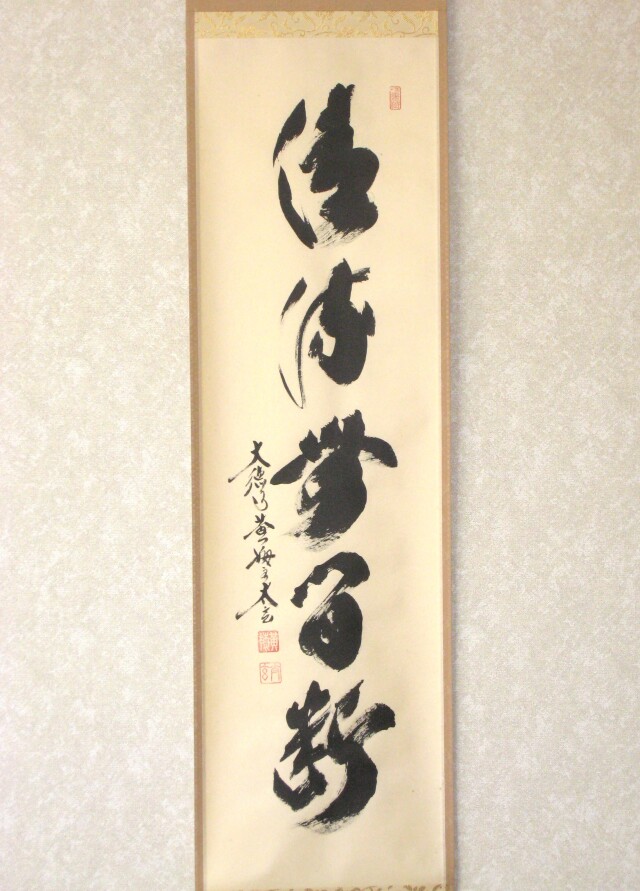 清流無間断
大徳寺黄梅院太玄